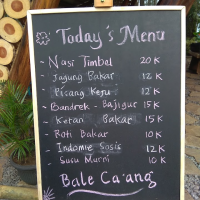 Today's Menu
- Nasi Timbel 20 K
- Jagung Bakar 12 K
- Pisang Keju 12 K
- Bandrek - Bajigur 15 K
- Ketan Bakar 15 K
- Roti Bakar 10 K
- Indomie Sosis 12 K
- Susu Murni 10 K
Bale Ca'ang